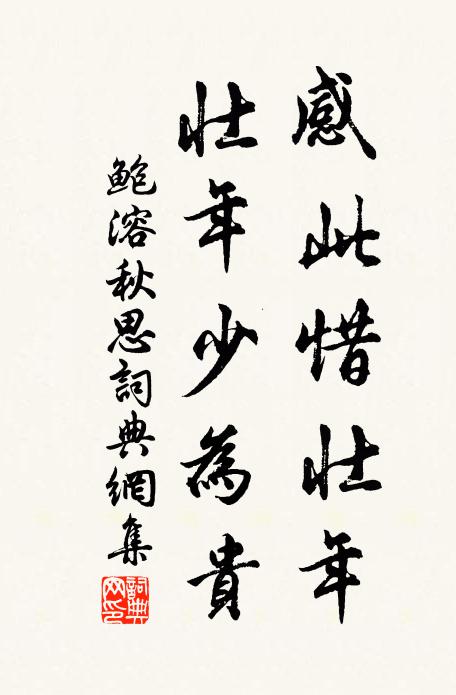 感此惜壯年
壯年少為貴
鮑溶秋思詞典網集
詞典網印